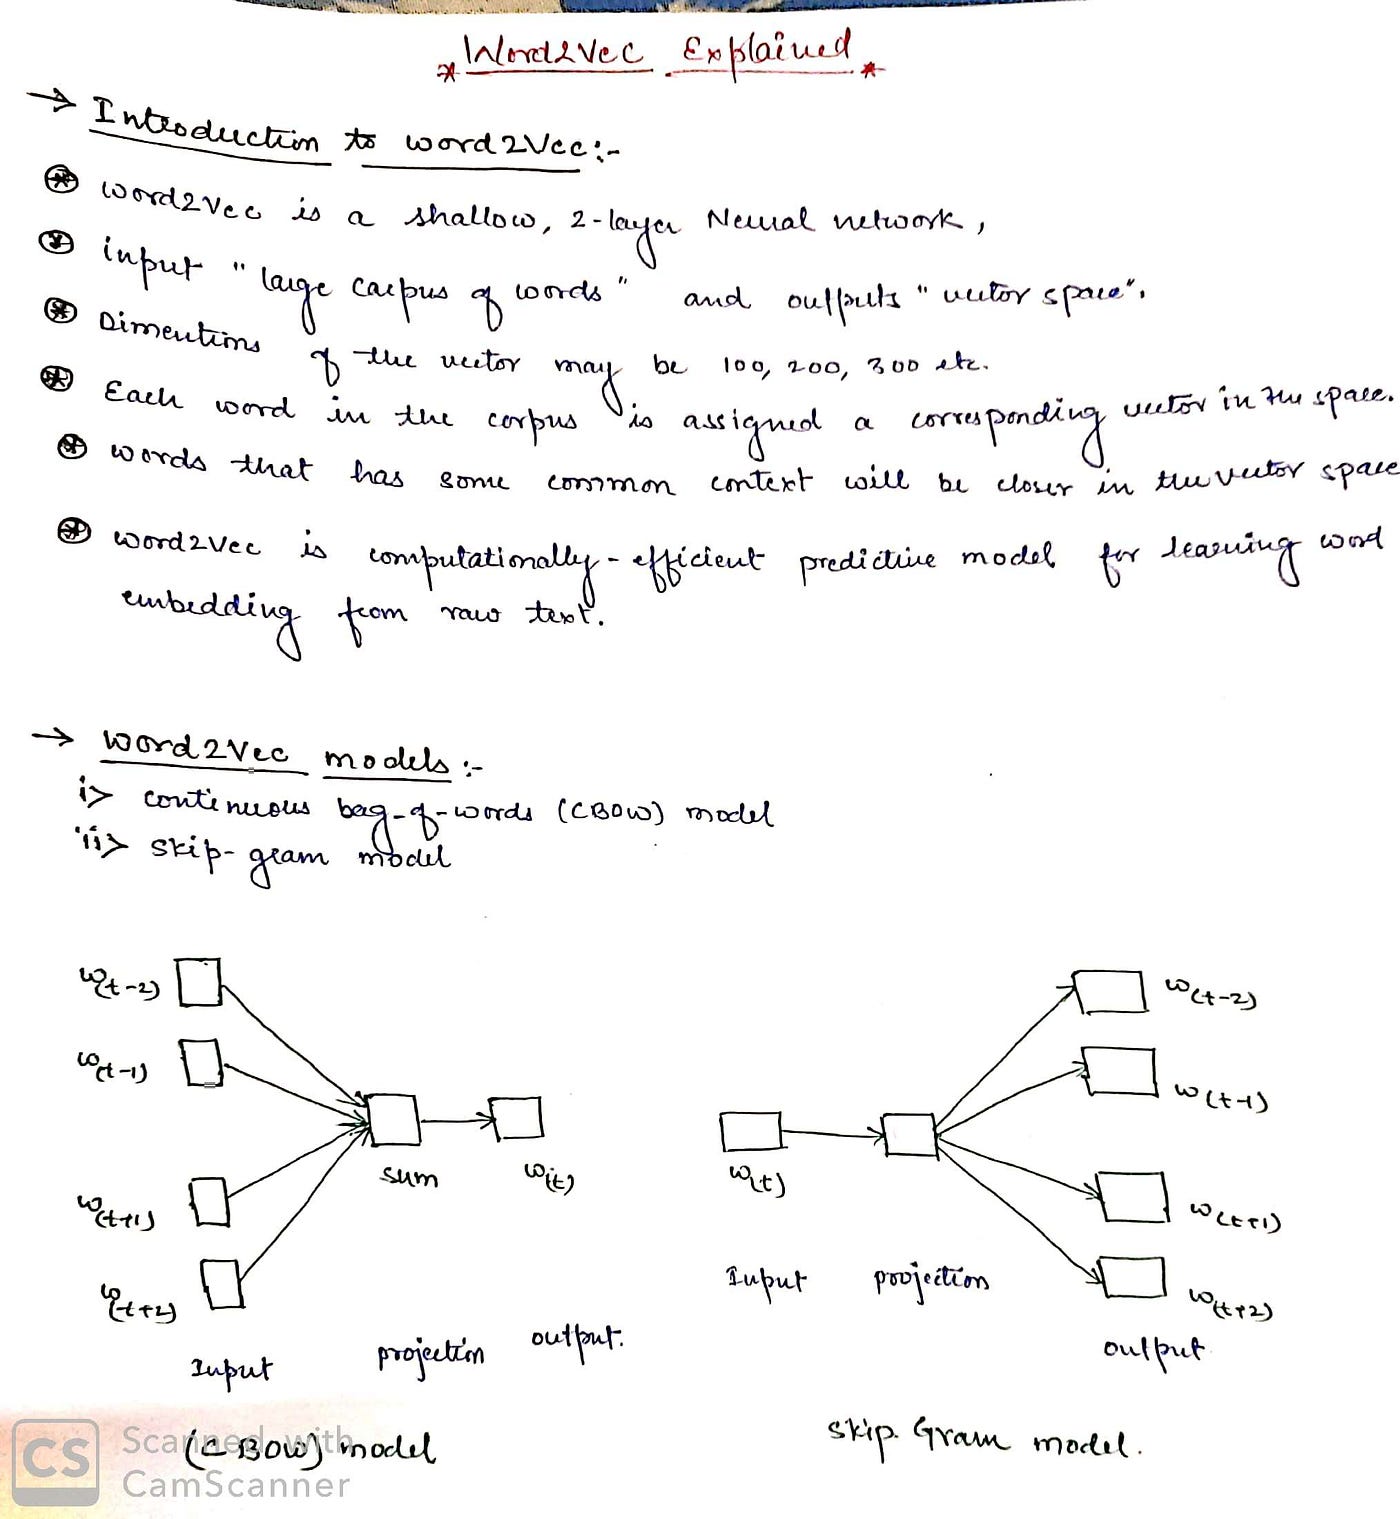 * Word2Vec Explained *
→ Introduction to word2Vec:-
⊛ word2vec is a shallow, 2-layer Neural network,
⊛ input "large corpus of words" and outputs "vector space".
⊛ Dimentions of the vector may be 100, 200, 300 etc.
⊛ Each word in the corpus is assigned a corresponding vector in the space.
⊛ words that has some common context will be closer in the vector space
⊛ word2vec is computationally-efficient predictive model for learning word
embedding from raw text.
→ word2Vec models:-
i> continuous bag-of-words (CBOW) model
ii> skip-gram model
w(t-2)
w(t-1)
w(t+1)
w(t+2)
sum
w(t)
Input projection output.
(CBOW) model
w(t)
w(t-2)
w(t-1)
w(t+1)
w(t+2)
Input projection output
skip Gram model.
CS Scanned with
CamScanner